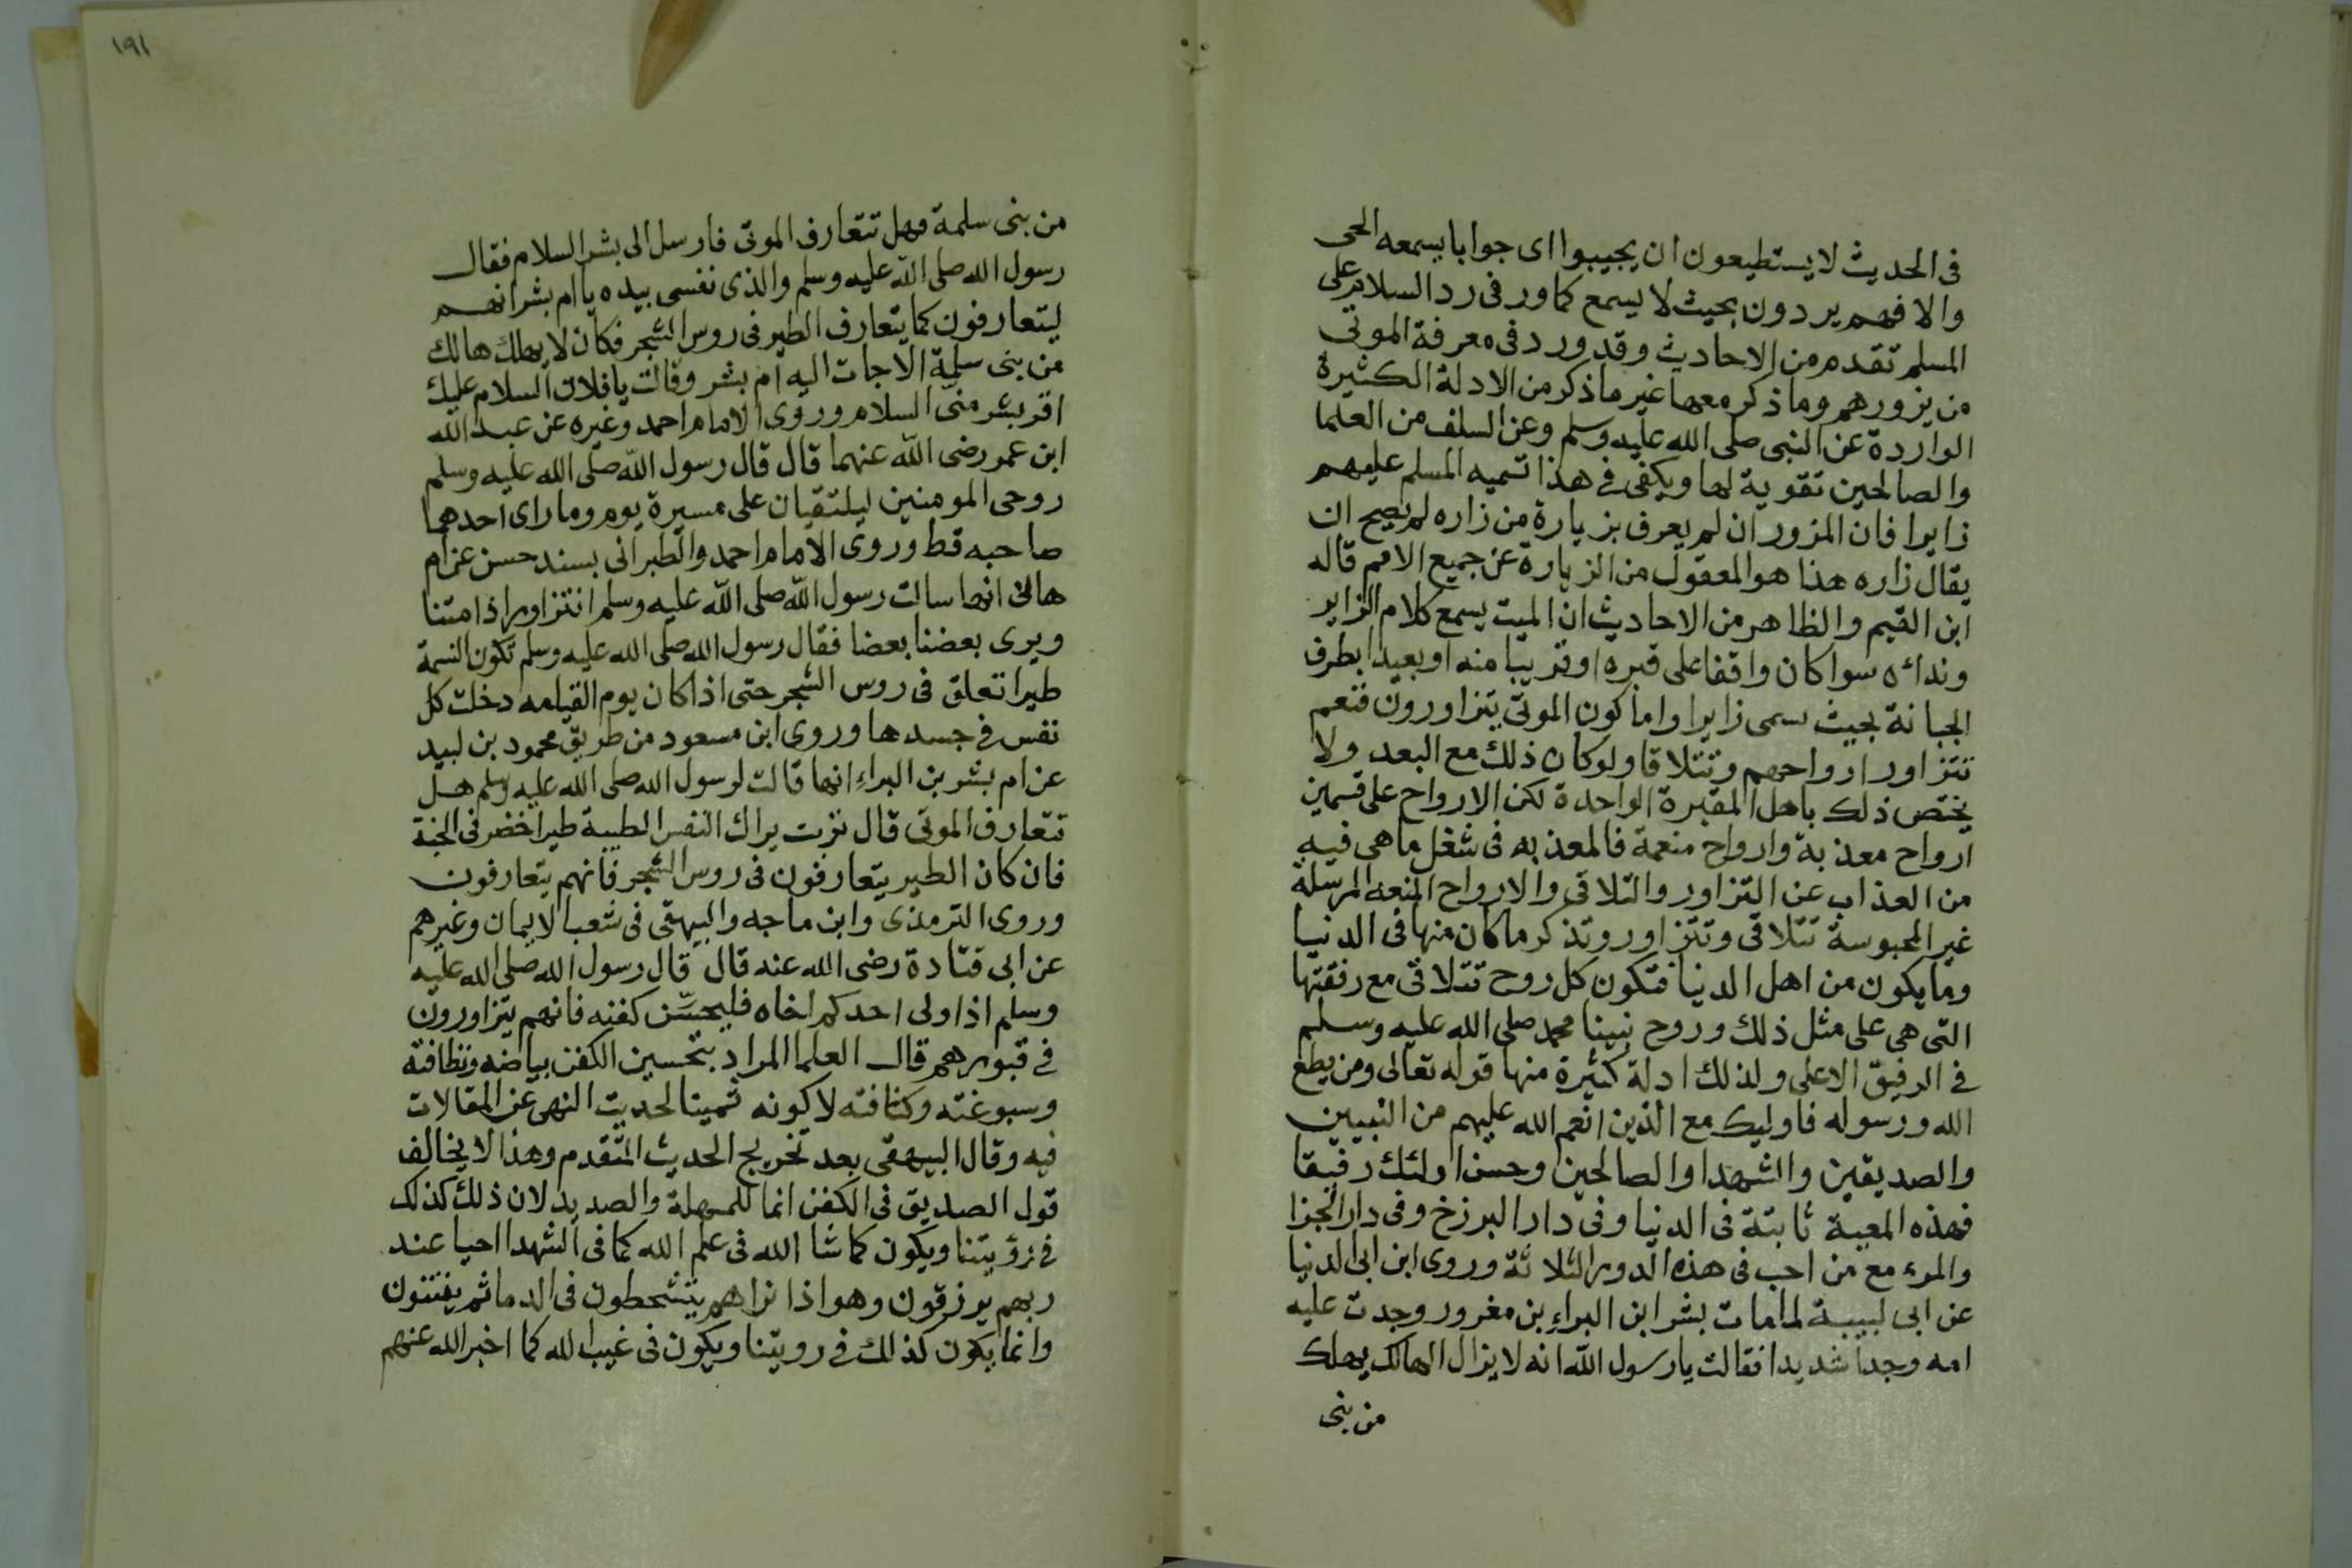 فى الحديث لا يستطيعون ان يجيبوا اى جوابا يسمعه الحى
والا فهم يردون بحيث لا يسمع كما ور فى رد السلام على
المسلم تقدم من الاحاديث وقد ورد فى معرفة الموتى
من يزورهم وما ذكر معها غير ما ذكر من الادلة الكثيرة
الواردة عن النبى صلى الله عليه وسلم وعن السلف من العلما
والصالحين تقوية لها ويكفى فى هذا تسميه المسلم عليهم
زايرا فان المزور ان لم يعرف بزيارة من زاره لم يصح ان
يقال زاره هذا هو المعقول من الزيارة عن جميع الامم قاله
ابن القيم والظاهر من الاحاديث ان الميت يسمع كلام الزاير
وندائه سوا كان واقفا على قبره او قريبا منه او بعيدا بطرف
الجبانة بحيث سمى زايرا واما كون الموتى يتزاورون فنعم
تتزاور ارواحهم وتتلاقا ولو كان ذلك مع البعد ولا
يختص ذلك باهل المقبرة الواحدة لكن الارواح على قسمين
ارواح معذبة وارواح منعمة فالمعذبه فى شغل ما هى فيه
من العذاب عن التزاور والتلاقى والارواح المنعمه المرسلة
غير المحبوسة تتلاقى وتتزاور وتذكر ما كان منها فى الدنيا
وما يكون من اهل الدنيا فتكون كل روح تتلاقى مع رفقتها
التى هى على مثل ذلك وروح نبينا محمد صلى الله عليه وسلم
فى الرفيق الاعلى ولذلك ادلة كثيرة منها قوله تعالى ومن يطع
الله ورسوله فاوليك مع الذين انعم الله عليهم من النبيين
والصديقين والشهدا والصالحين وحسن اولئك رفيقا
فهذه المعية ثابتة فى الدنيا وفى دار البرزخ وفى دار الجزا
والمرء مع من احب فى هذه الدور الثلاثة وروى ابن ابى الدنيا
عن ابى لبيبة لما مات بشر ابن البراء بن مغرور وجدت عليه
امه وجدا شديدا فقالت يا رسول الله انه لا يزال الهالك يهلك
من بنى
١٩١
من بنى سلمة فهل تتعارف الموتى فارسل الى بشر السلام فقال
رسول الله صلى الله عليه وسلم والذى نفسى بيده يا ام بشر انهم
ليتعارفون كما يتعارف الطير فى روس الشجر فكان لا يهلك هالك
من بنى سلمة الا جات اليه ام بشر وقالت يا فلان السلام عليك
اقر بشر منى السلام وروى الامام احمد وغيره عن عبد الله
ابن عمر رضى الله عنهما قال قال رسول الله صلى الله عليه وسلم
روحى المومنين ليلتقيان على مسيرة يوم وما راى احدهما
صاحبه قط وروى الامام احمد والطبرانى بسند حسن عن ام
هانى انها سالت رسول الله صلى الله عليه وسلم انتزاور اذا متنا
ويرى بعضنا بعضا فقال رسول الله صلى الله عليه وسلم تكون النسمة
طيرا تعلق فى روس الشجر حتى اذا كان يوم القيامه دخلت كل
نفس فى جسدها وروى ابن مسعود من طريق محمود بن لبيد
عن ام بشر بن البراء انها قالت لرسول الله صلى الله عليه وسلم هل
تتعارف الموتى قال تربت يراك النفس الطيبة طير اخضر فى الجنة
فان كان الطير يتعارفون فى روس الشجر فانهم يتعارفون
وروى الترمذى وابن ماجه والبيهقى فى شعب الايمان وغيرهم
عن ابى قتادة رضى الله عنه قال قال رسول الله صلى الله عليه
وسلم اذا ولى احدكم اخاه فليحسّن كفنه فانهم يتزاورون
فى قبورهم قال العلما المراد بتحسين الكفن بياضه ونظافته
وسبوغته وكثافته لا كونه ثمينا لحديث النهى عن المقالات
فيه وقال البيهقى بعد تخريج الحديث المتقدم وهذا لا يخالف
قول الصديق فى الكفن انما للمهلة والصديد لان ذلك كذلك
فى رؤيتنا ويكون كما شا الله فى علم الله كما فى الشهدا احيا عند
ربهم يرزقون وهو اذا نراهم يتشحطون فى الدما ثم يفتنون
وانما يكون كذلك فى رويتنا ويكون فى غيب الله كما اخبر الله عنهم